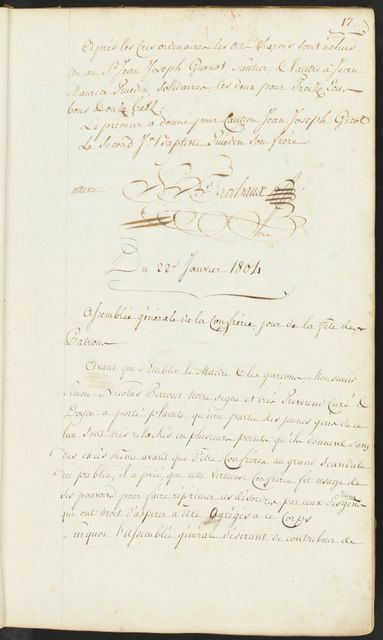 17.
Après les Cris ordinaires les dits Charois sont échus
un au Sr Jean Joseph Guerat, Sautier, & l'autre à Jean
Maurice Ruedin, solidaires les deux pour Treize Ecu-
bons Douze batz.
Le premier a donné pour Caution Jean Joseph Girot
Le Second Jn Baptiste Ruedin Son frère
atteste Frochaux
Du 22e Janvier 1804.
Assemblée générale de la Confrérie, jour de la fête des
Patrons.
Avant que d'établir le Maître & les garçons Monsieur
Simon Nicolas notre digne et très Révérend Curé &
Doyen a porté plainte, qu'une partie des jeunes gens de ce
lieu sont très relachés en plusieurs points qu'ils donnent dans
des excès même avant que d'être Confrères au grand scandale
du public, il a prié que cette vertueuse Confrérie fit usage de
ses pouvoirs pour faire reprimer ces desordres par ceux des jeunes gens
qui ont droit d'aspirer à être Agrégés a ce Corps
Surquoi l'Assemblée générale désirant de contribuer de